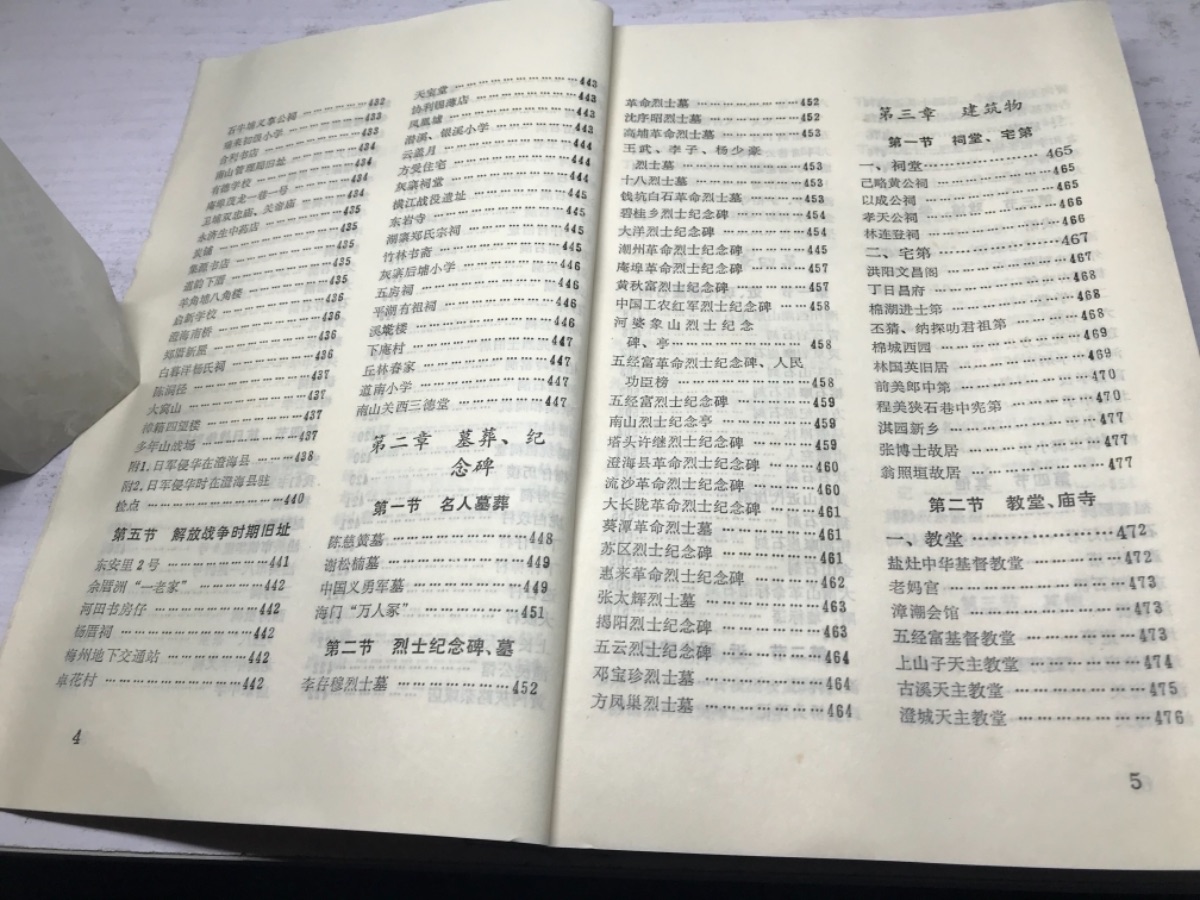 百牛墟义冢公祠 ………………432
443
443
南山管理局旧址 ………………434
有德学校 ………………434
梅埠茂龙一巷一号 ………………434
卫埔双忠庙、关帝庙 ………434
永济生中药店 ………………435
炭铺 ………………435
集源书店 ………………435
羊角埔八角楼 ………………435
启新学校 ………………436
澄海南桥 ………………436
郑厝新厦 ………………436
白暮洋杨氏祠 ………………436
陈洞径 ………………437
大窝山 ………………437
樟籍四望楼 ………………437
多年山战场 ………………437
附1.日军侵华在澄海县 ………438
附2.日军侵华时在澄海县驻
检点 ………………440
第五节 解放战争时期旧址
东安里2号 ………………441
余厝洲“一老家” ………………442
河田书房仔 ………………442
杨厝祠 ………………442
梅州地下交通站 ………………442
草花村 ………………442
4
天宝堂 ………………443
协利锡薄店 ………………443
凤凰墟 ………………443
潜溪、银溪小学 ………………443
云盖月 ………………444
方爻住宅 ………………444
灰寨祠堂 ………………444
横江战役遗址 ………………445
东岩寺 ………………445
湖寨郑氏宗祠 ………………445
竹林书斋 ………………445
灰寨后埔小学 ………………446
五房祠 ………………446
平湖有祖祠 ………………446
溪墘楼 ………………446
下庵村 ………………447
丘林春家 ………………447
道南小学 ………………447
南山关西三德堂 ………………447
第二章 墓葬、纪
念碑
第一节 名人墓葬
陈慈黉墓 ………………448
谢松楠墓 ………………449
中国义勇军墓 ………………449
海门“万人冢” ………………451
第二节 烈士纪念碑、墓
李春穆烈士墓 ………………452
革命烈士墓 ………………452
沈序昭烈士墓 ………………452
高埔革命烈士墓 ………………453
王武、李子、杨少豪
烈士墓 ………………453
十八烈士墓 ………………453
钱坑白石革命烈士墓 ………453
碧桂乡烈士纪念碑 ………454
大洋烈士纪念碑 ………………454
潮州革命烈士纪念碑 ………445
庵埠革命烈士纪念碑 ………457
黄秋富烈士纪念碑 ………457
中国工农红军烈士纪念碑 …458
河婆象山烈士纪念
碑、亭 ………………458
五经富革命烈士纪念碑、人民
功臣榜 ………………458
五经富烈士纪念碑 ………459
南山烈士纪念亭 ………………459
塔头许继烈士纪念碑 ………459
澄海县革命烈士纪念碑 ……460
流沙革命烈士纪念碑 ………460
大长陇革命烈士纪念碑 ……461
葵潭革命烈士墓 ………………461
苏区烈士纪念碑 ………………461
惠来革命烈士纪念碑 ………462
张太辉烈士墓 ………………463
揭阳烈士纪念碑 ………………463
五云烈士纪念碑 ………………464
邓宝珍烈士墓 ………………464
方凤巢烈士墓 ………………464
第三章 建筑物
第一节 祠堂、宅第
一、祠堂 ………………465
己略黄公祠 ………………465
以成公祠 ………………465
孝天公祠 ………………466
林连登祠 ………………466
二、宅第 ………………467
洪阳文昌阁 ………………467
丁日昌府 ………………468
棉湖进士第 ………………468
丕猜、纳探叻君祖第 ………468
棉城西园 ………………469
林国英旧居 ………………469
前美郎中第 ………………470
程美狭石巷中宪第 ………470
淇园新乡 ………………477
张博士故居 ………………477
翁照垣故居 ………………477
第二节 教堂、庙寺
一、教堂 ………………472
盐灶中华基督教堂 ………472
老妈宫 ………………473
漳潮会馆 ………………473
五经富基督教堂 ………………473
上山子天主教堂 ………………474
古溪天主教堂 ………………475
澄城天主教堂 ………………476
5